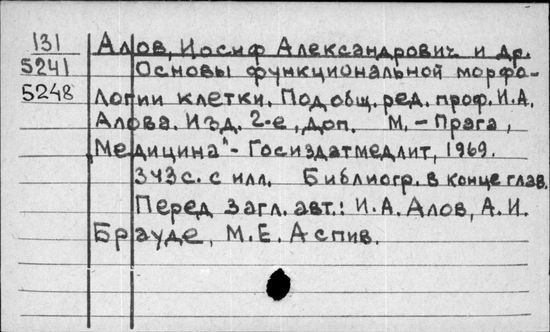 131 Алов, Иосиф Александрович и др.
5241 Основы функциональной морфо-
5248 логии клетки. Под общ. ред. проф. И.А.
Алова. Изд. 2-е, доп. М. - Прага,
"Медицина" - Госиздатмедлит, 1969.
343 с. с илл. Библиогр. в конце глав.
Перед загл. авт.: И.А. Алов, А.И.
Брауде, М.Е. Аспив.